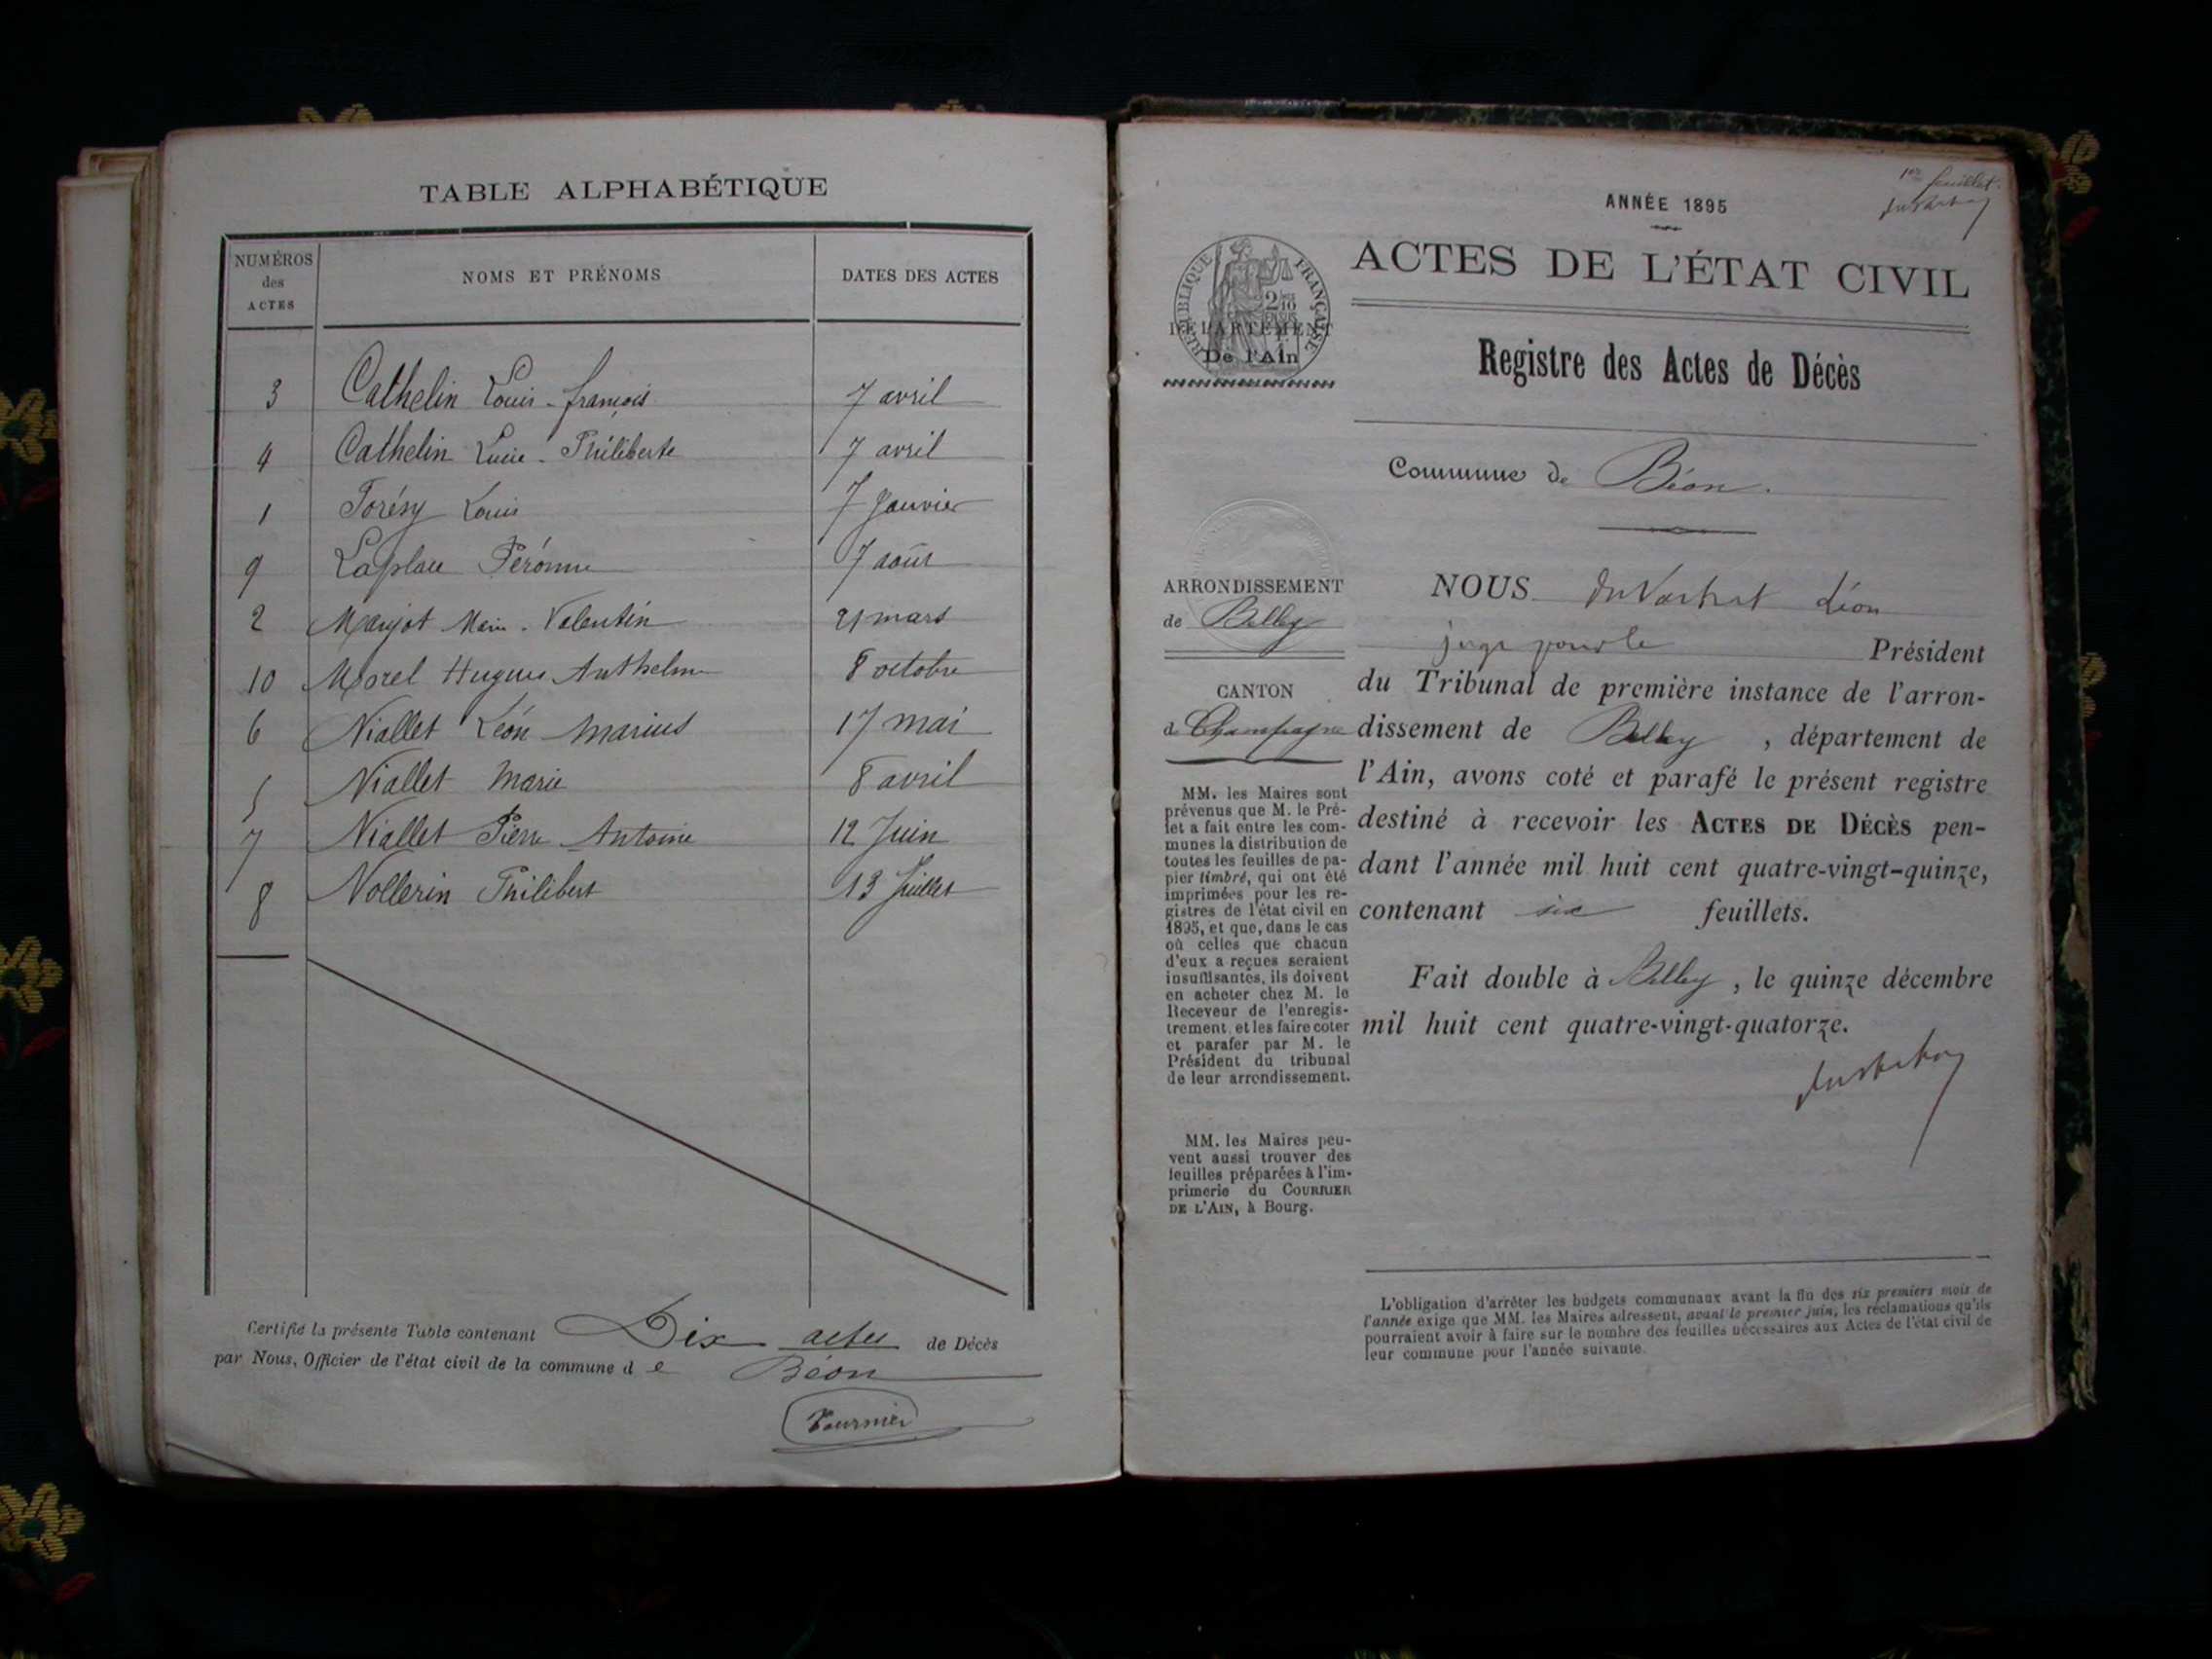 TABLE ALPHABÉTIQUE
NUMÉROS des ACTES NOMS ET PRÉNOMS DATES DES ACTES
3 Cathelin Louis-françois 7 avril
4 Cathelin Lucie-Philiberte 7 avril
1 Louis 7 Janvier
9 Laplace Péronne 7 août
2 Valentin 21 mars
10 Morel Hugues Anthelme 8 octobre
6 Niallet Léon Marius 17 mai
5 Niallet Marie 8 avril
7 Niallet Pierre Antoine 12 Juin
8 Vollerin Philibert 13 Juillet
Certifié la présente Table contenant Dix actes de Décès
par Nous, Officier de l'état civil de la commune de Béon
Fournier
1er feuillet
ANNÉE 1895
ACTES DE L'ÉTAT CIVIL
RÉPUBLIQUE FRANÇAISE
DÉPARTEMENT
De l'Ain
Registre des Actes de Décès
Commune de Béon.
ARRONDISSEMENT
de Belley
CANTON
de Champagne
MM. les Maires sont
prévenus que M. le Pré-
fet a fait entre les com-
munes la distribution de
toutes les feuilles de pa-
pier timbré, qui ont été
imprimées pour les re-
gistres de l'état civil en
1895, et que, dans le cas
où celles que chacun
d'eux a reçues seraient
insuffisantes, ils doivent
en acheter chez M. le
Receveur de l'enregis-
trement, et les faire coter
et parafer par M. le
Président du tribunal
de leur arrondissement.
MM. les Maires peu-
vent aussi trouver des
feuilles préparées à l'im-
primerie du COURRIER
DE L'AIN, à Bourg.
NOUS Léon
juge pour le Président
du Tribunal de première instance de l'arron-
dissement de Belley, département de
l'Ain, avons coté et parafé le présent registre
destiné à recevoir les ACTES DE DÉCÈS pen-
dant l'année mil huit cent quatre-vingt-quinze,
contenant six feuillets.
Fait double à Belley, le quinze décembre
mil huit cent quatre-vingt-quatorze.
L'obligation d'arrêter les budgets communaux avant la fin des six premiers mois de
l'année exige que MM. les Maires adressent, avant le premier juin, les réclamations qu'ils
pourraient avoir à faire sur le nombre des feuilles nécessaires aux Actes de l'état civil de
leur commune pour l'année suivante.